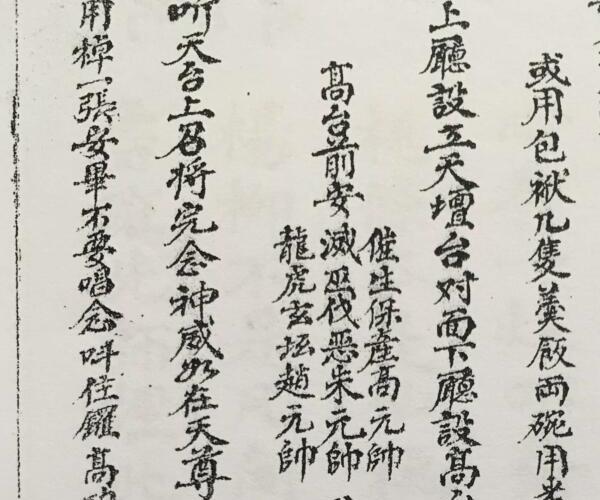 或用包袱几隻羹飯両碗用
上廳設立天壇台对面下廳設高
高台前安
催生保產高元帥
滅巫伐惡朱元帥
龍虎玄坛趙元帥
吩天台上召将完念神威如在天尊
用棹一張安畢不要唱念呌住鑼高